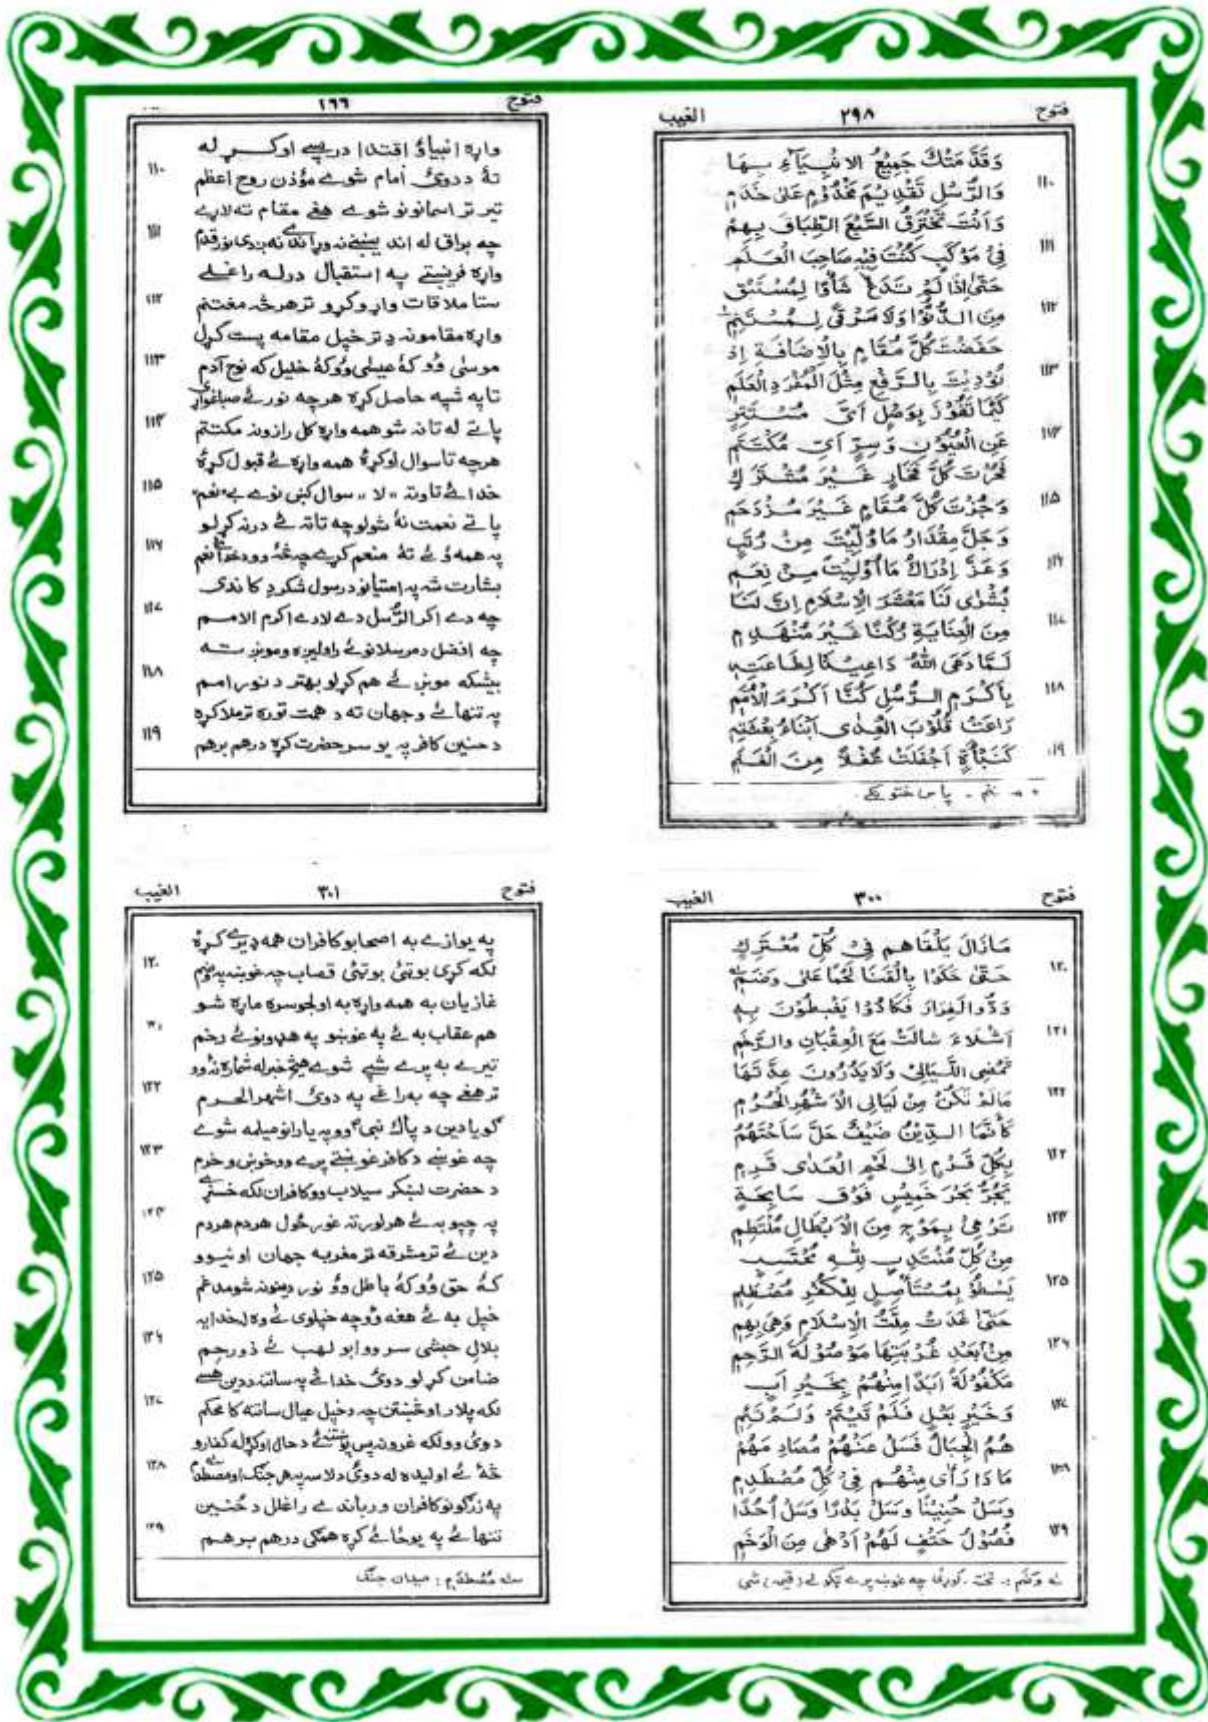 فتوح ٢٩٨ الغيب
وَقَدَّمَتْكَ جَمِيْعُ الْانْبِيَآءِ بِهَا
١١٠ وَالرُّسُلِ تَقْدِيْمَ مَخْدُوْمٍ عَلٰى خَدَمِ
وَاَنْتَ تَخْتَرِقُ السَّبْعَ الطِّبَاقَ بِهِمْ
١١١ فِىْ مَوْكَبٍ كُنْتَ فِيْهِ صَاحِبَ الْعَلَمِ
حَتّٰى اِذَا لَمْ تَدَعْ شَاْوًا لِمُسْتَبِقٍ
١١٢ مِنَ الدُّنُوِّ وَلَا مَرْقًى لِمُسْتَنِمِ
خَفَضْتَ كُلَّ مَقَامٍ بِالْاِضَافَةِ اِذْ
١١٣ نُوْدِيْتَ بِالرَّفْعِ مِثْلَ الْمُفْرَدِ الْعَلَمِ
كَيْمَا تَفُوْزَ بِوَصْلٍ اَىِّ مُسْتَتِرٍ
١١٤ عَنِ الْعُيُوْنِ وَسِرٍّ اَىِّ مُكْتَتَمِ
فَحُزْتَ كُلَّ فَخَارٍ غَيْرَ مُشْتَرَكٍ
١١٥ وَجُزْتَ كُلَّ مَقَامٍ غَيْرَ مُزْدَحَمِ
وَجَلَّ مِقْدَارُ مَا وُلِّيْتَ مِنْ رُتَبٍ
١١٦ وَعَزَّ اِدْرَاكُ مَا اُوْلِيْتَ مِنْ نِعَمِ
بُشْرٰى لَنَا مَعْشَرَ الْاِسْلَامِ اِنَّ لَنَا
١١٧ مِنَ الْعِنَايَةِ رُكْنًا غَيْرَ مُنْهَدِمِ
لَمَّا دَعَى اللّٰهُ دَاعِيْنَا لِطَاعَتِهٖ
١١٨ بِاَكْرَمِ الرُّسُلِ كُنَّا اَكْرَمَ الْاُمَمِ
رَاعَتْ قُلُوْبَ الْعِدٰى اَنْبَاءُ بِعْثَتِهٖ
١١٩ كَنَبْاَةٍ اَجْفَلَتْ غُفْلًا مِنَ الْغَنَمِ
فتوح
واړه انبياؤ اقتدا درپسے اوکړله
١١٠ تۀ ددوئ امام شوے مؤذن روح اعظم
تير تر اسمانونو شوے هغے مقام ته لاړے
١١١ چه براق له
واړه فرښتے په استقبال درله راغلے
١١٢ ستا ملاقات واړو کړو تر هرڅه مغتنم
واړه مقامونه دِ تر خپل مقامه پست کړل
١١٣ موسٰى وُو کۀ عيسٰى وُو کۀ خليل که نوح آدم
تا په شپه حاصل کړه هرچه نور ئے
١١٤ پاتے له تا نه شو همه واړه کل رازونه مکتتم
هرچه تا سوال اوکړۀ همه واړه ئے قبول کړۀ
١١٥ خدائے تا وته «لا» سوال کښى نوے بے «نعم»
پاتے نعمت نۀ شو لو چه تا ته ئے درنه کړلو
١١٦ په همه وُ ئے تۀ منعم کړے چه
بشارت شه په امتيانو د رسول شکر دِ کاندى
١١٧ چه دے اکرم الرُّسل دے لارے اکرم الامم
چه افضل د مرسلانو ئے راوليږه ومونږ ته
١١٨ بيشکه مونږ ئے هم کړلو بهتر د نورامم
په تنهائے وجهان ته د همت توره تر ملا کړه
١١٩ د حنين کافر په يو سر حضرت کړه درهم برهم
فتوح ٣٠٠ الغيب
مَازَالَ يَلْقَاهم فِىْ كُلِّ مُعْتَرَكٍ
١٢٠ حَتّٰى حَكَوْا بِالْقَنَا لَحْمًا عَلٰى وَضَمِ
وَدُّوا الْفِرَارَ فَكَادُوْا يَغْبِطُوْنَ بِهٖ
١٢١ اَشْلَاءَ شَالَتْ مَعَ الْعِقْبَانِ وَالرَّخَمِ
تَمْضِى اللَّيَالِىْ وَلَا يَدْرُوْنَ عِدَّتَهَا
١٢٢ مَالَمْ تَكُنْ مِنْ لَيَالِى الْاَشْهُرِ الْحُرُمِ
كَاَنَّمَا الدِّيْنُ ضَيْفٌ حَلَّ سَاحَتَهُمْ
١٢٣ بِكُلِّ قَرْمٍ اِلٰى لَحْمِ الْعِدٰى قَرِمِ
يَجُرُّ بَحْرَ خَمِيْسٍ فَوْقَ سَابِحَةٍ
١٢٤ تَرْمِىْ بِمَوْجٍ مِنَ الْاَبْطَالِ مُلْتَطِمِ
مِنْ كُلِّ مُنْتَدِبٍ لِلّٰهِ مُحْتَسِبٍ
١٢٥ يَسْطُوْ بِمُسْتَأْصِلٍ لِلْكُفْرِ مُصْطَلِمِ
حَتّٰى غَدَتْ مِلَّتُ الْاِسْلَامِ وَهِىَ بِهِمْ
١٢٦ مِنْ بَعْدِ غُرْبَتِهَا مَوْصُوْلَةَ الرَّحِمِ
مَكْفُوْلَةً اَبَدًا مِنْهُمْ بِخَيْرِ اَبٍ
١٢٧ وَخَيْرِ بَعْلٍ فَلَمْ تَيْتَمْ وَلَمْ تَئِمِ
هُمُ الْجِبَالُ فَسَلْ عَنْهُمْ مُصَادِمَهُمْ
١٢٨ مَاذَا رَاٰى مِنْهُمْ فِىْ كُلِّ مُصْطَدِمِ
وَسَلْ حُنَيْنًا وَسَلْ بَدْرًا وَسَلْ اُحُدًا
١٢٩ فُصُوْلُ حَتْفٍ لَهُمْ اَدْهٰى مِنَ الْوَخَمِ
فتوح ٣٠١ الغيب
په يوازے به اصحابو کافران همه ډيرے کړۀ
١٢٠ لکه کړى بوټئ بوټئ قصاب چه غوښه په
غازيان به همه واړه به اولجو سره ماړه شو
هم عقاب به ئے په غوښو په هډوونو ئے رخم
تيرے به پرے شپے شوے هيڅ خبر له شماره نۀ وو
١٢٢ تر هغے چه به راغے په دوئ اشهر الحرم
ګويا دين د پاک نبى ووپه يارانو ميلمه شوے
١٢٣ چه غوښے د کافر غوښتے پرے وو خوښ و خرم
د حضرت لښکر سيلاب وو کافران لکه
١٢٤ په چپو به ئے هرلورته غورځول هردم هردم
دين ئے تر مشرقه تر مغربه جهان اونيوو
١٢٥ کۀ حق وُو کۀ باطل وُو نور دينونه شو مدغم
خپل به ئے هغه وُو چه خپلوى ئے وه لخدايه
١٢٦ بلال حبشى سر وو ابو لهب ئے ذورحم
ضامن کړلو دوئ خدائے په ساتنه د دين
١٢٧ لکه پلار او څښتن چه دخپل عيال ساتنه کا محکم
دوئ وو لکه غرونه پس پوښتنے د حال اوکړه له کفارو
١٢٨ څۀ ئے اوليده له دوئ د لاسه په هر جنګ او مصطدم
په زرګونو کافران ورباندے راغلل د حُنين
١٢٩ تنهائے په يو ځائے کړه همګى درهم برهم
مُصْطَدَمِ : ميدان جنګ